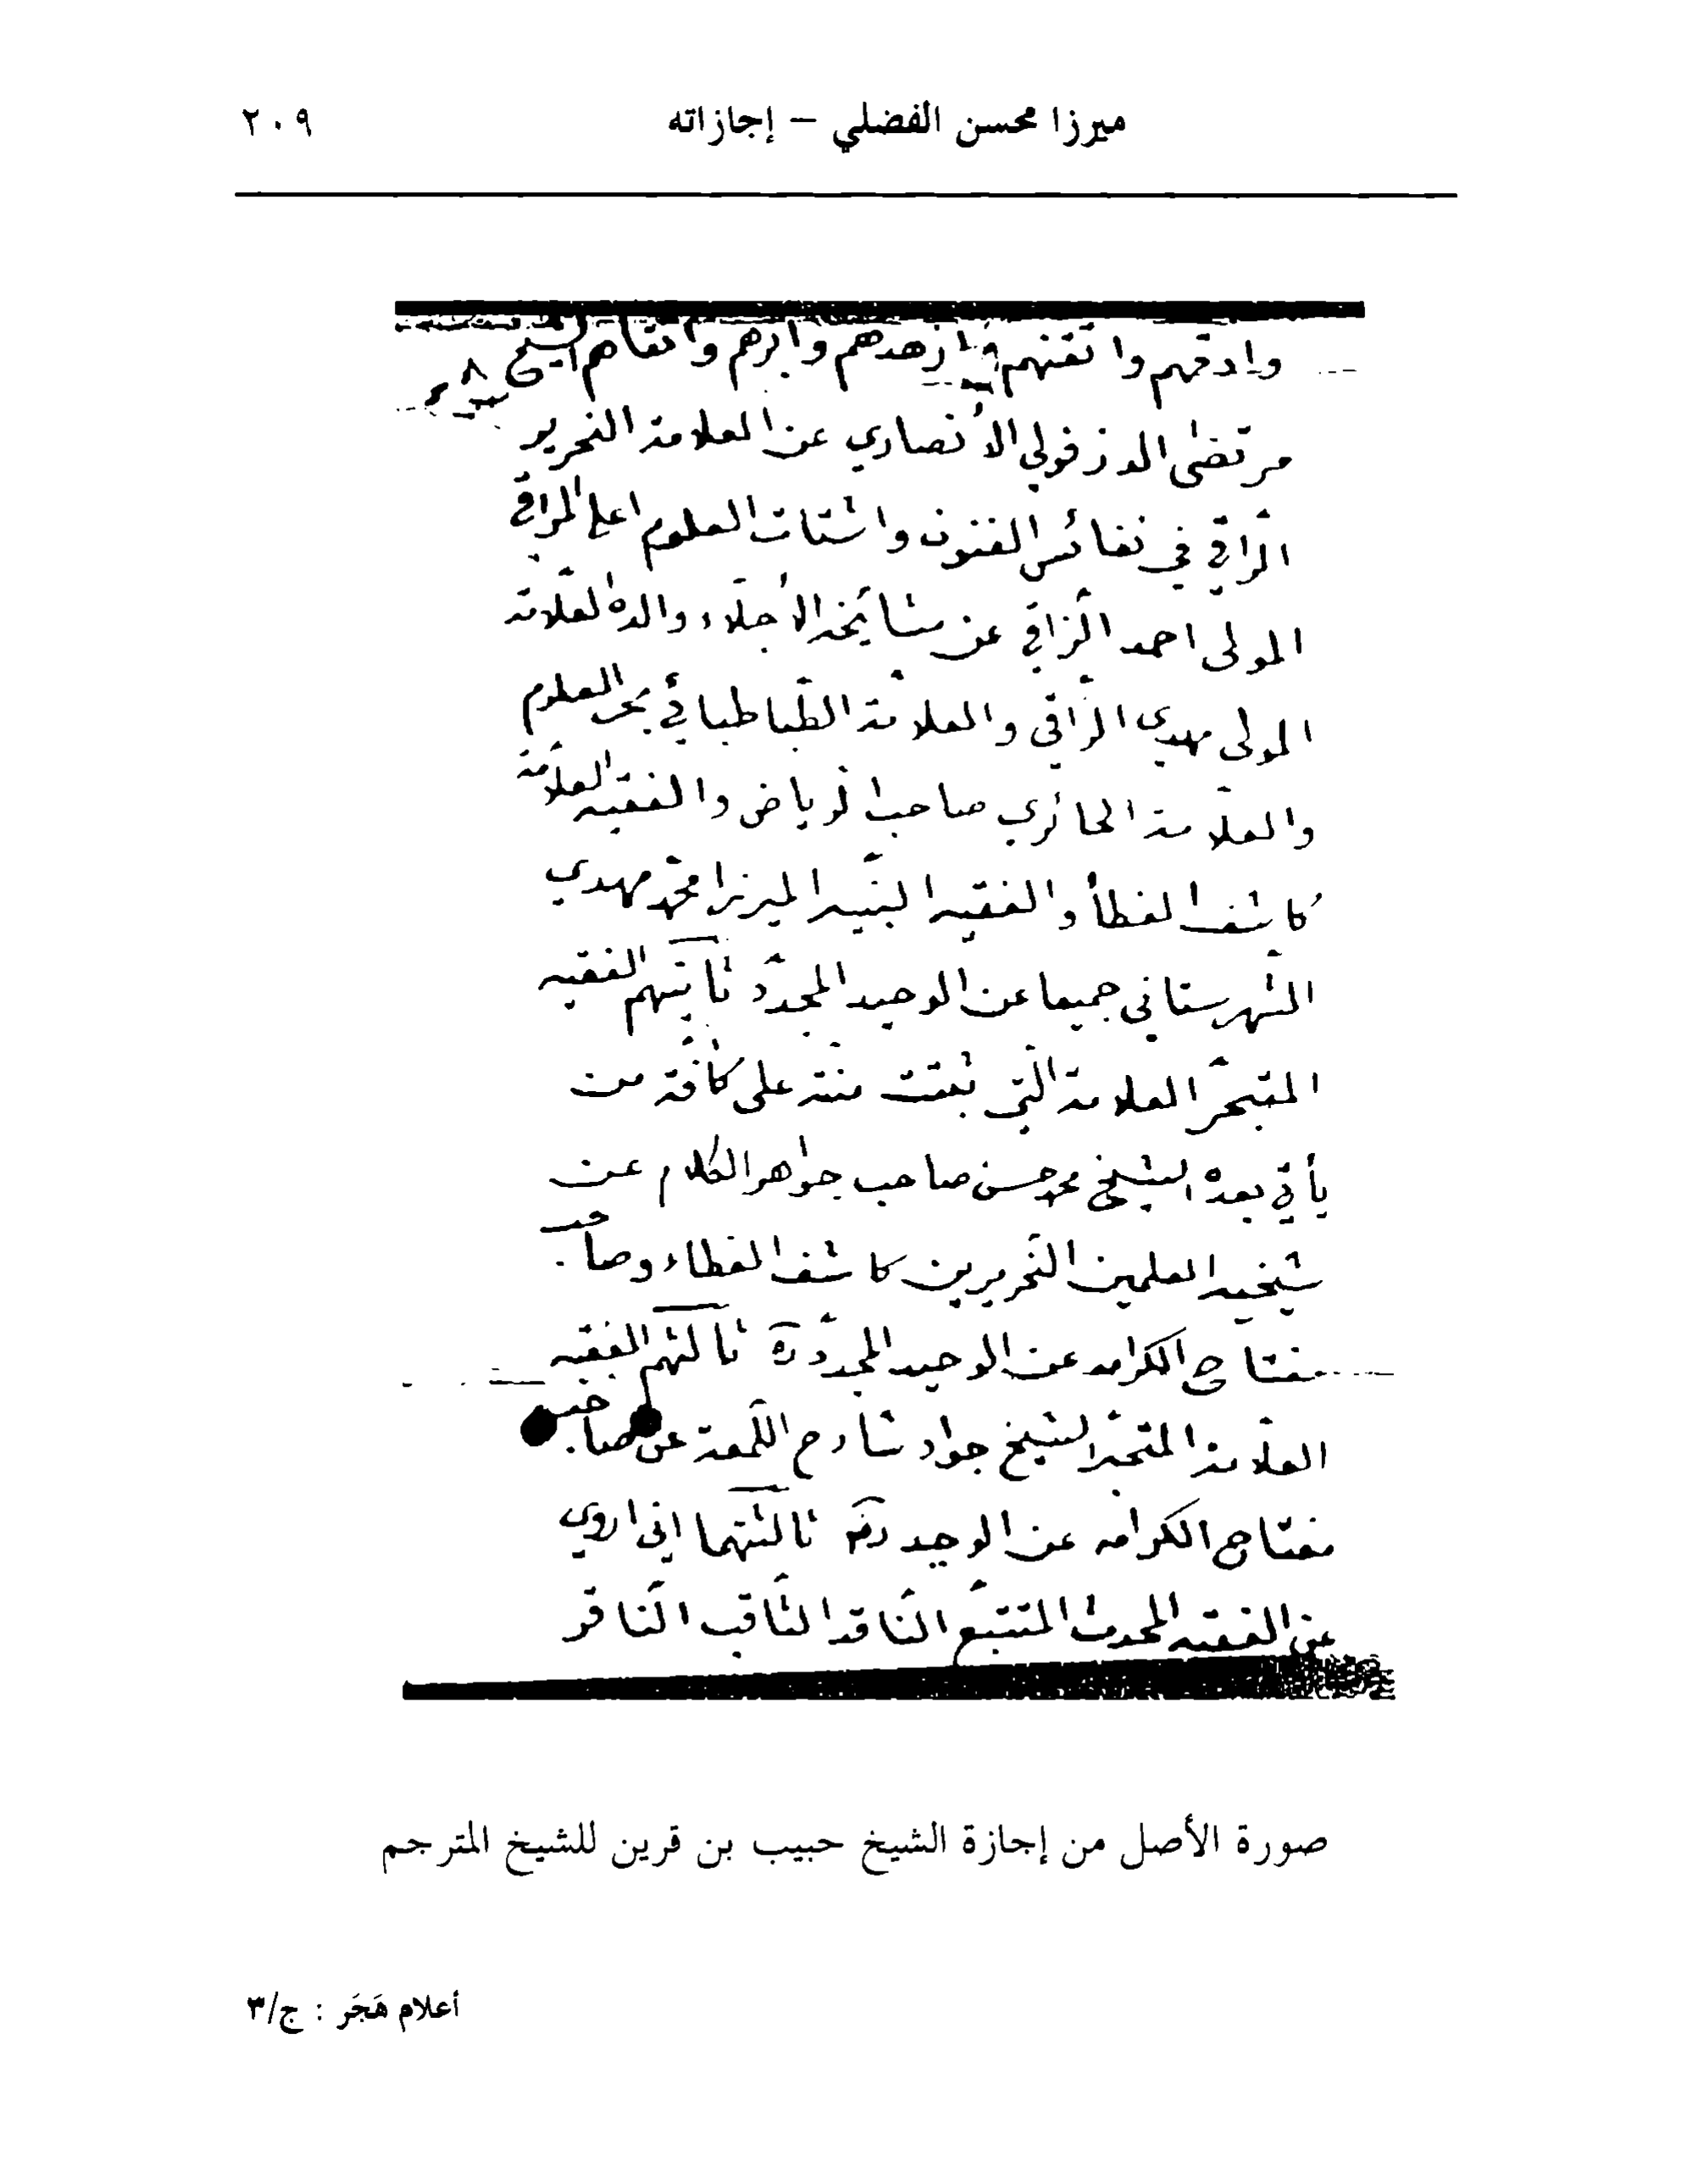 ميرزا محسن الفضلي – إجازاته ٢٠٩
وادقهم واتقنهم وازهدهم وابرهم واتقاهم الشيخ
مرتضى الدزفولي الأنصاري عن العلامة النحرير
الراقي في نفائس الفنون واشتات العلوم اعلى المراقي
المولى احمد النراقي عن مشائخه الأجلاء والده العلامة
المولى مهدي النراقي والعلامة الطباطبائي بحر العلوم
والعلامة الحائري صاحب الرياض والفقيه العلامة
كاشف الغطأ والفقيه النبيه الميرزا محمد مهدي
الشهرستاني جميعا عن الوحيد المجدد ثانيهم الفقيه
المتبحر العلامة التي ثبتت منته على كافة من
يأتي بعده الشيخ محمد حسن صاحب جواهر الكلام عن
شيخيه العلمين النحريرين كاشف الغطاء وصاحب
مفتاح الكرامه عن الوحيد المجدد ره ثالثهم الفقيه
العلامة المتبحر الشيخ جواد شارح اللمعة عن صاحب
مفتاح الكرامه عن الوحيد ثالثتهما اني اروي
عن الفقيه المحدث المتتبع الناقد الثاقب الناقر
صورة الأصل من إجازة الشيخ حبيب بن قرين للشيخ المترجم
أعلام هَجَر : ج/٣